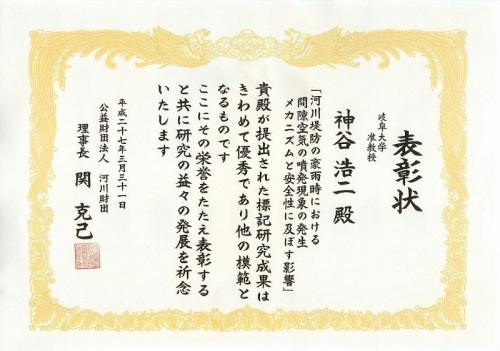 表彰状
岐阜大学
准教授
神谷 浩二 殿
「河川堤防の豪雨時における
間隙空気の噴発現象の発生
メカニズムと安全性に及ぼす影響」
貴殿が提出された標記研究成果は
きわめて優秀であり他の模範と
なるものです
ここにその栄誉をたたえ表彰する
と共に研究の益々の発展を祈念
いたします
平成二十七年三月三十一日
公益財団法人 河川財団
理事長 関 克己